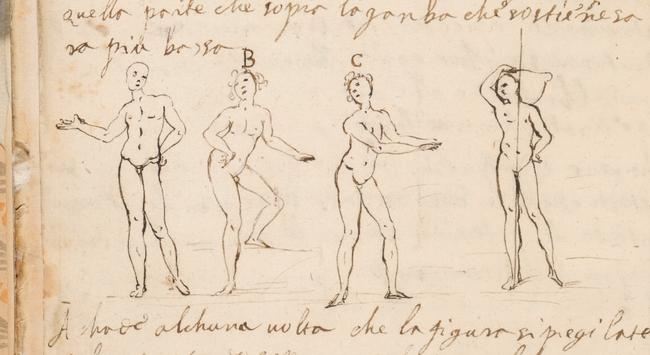 quella parte che sopra la ganba che sostiene sa
ra più bassa
B
C
alchuna uolta che la figura si piegi